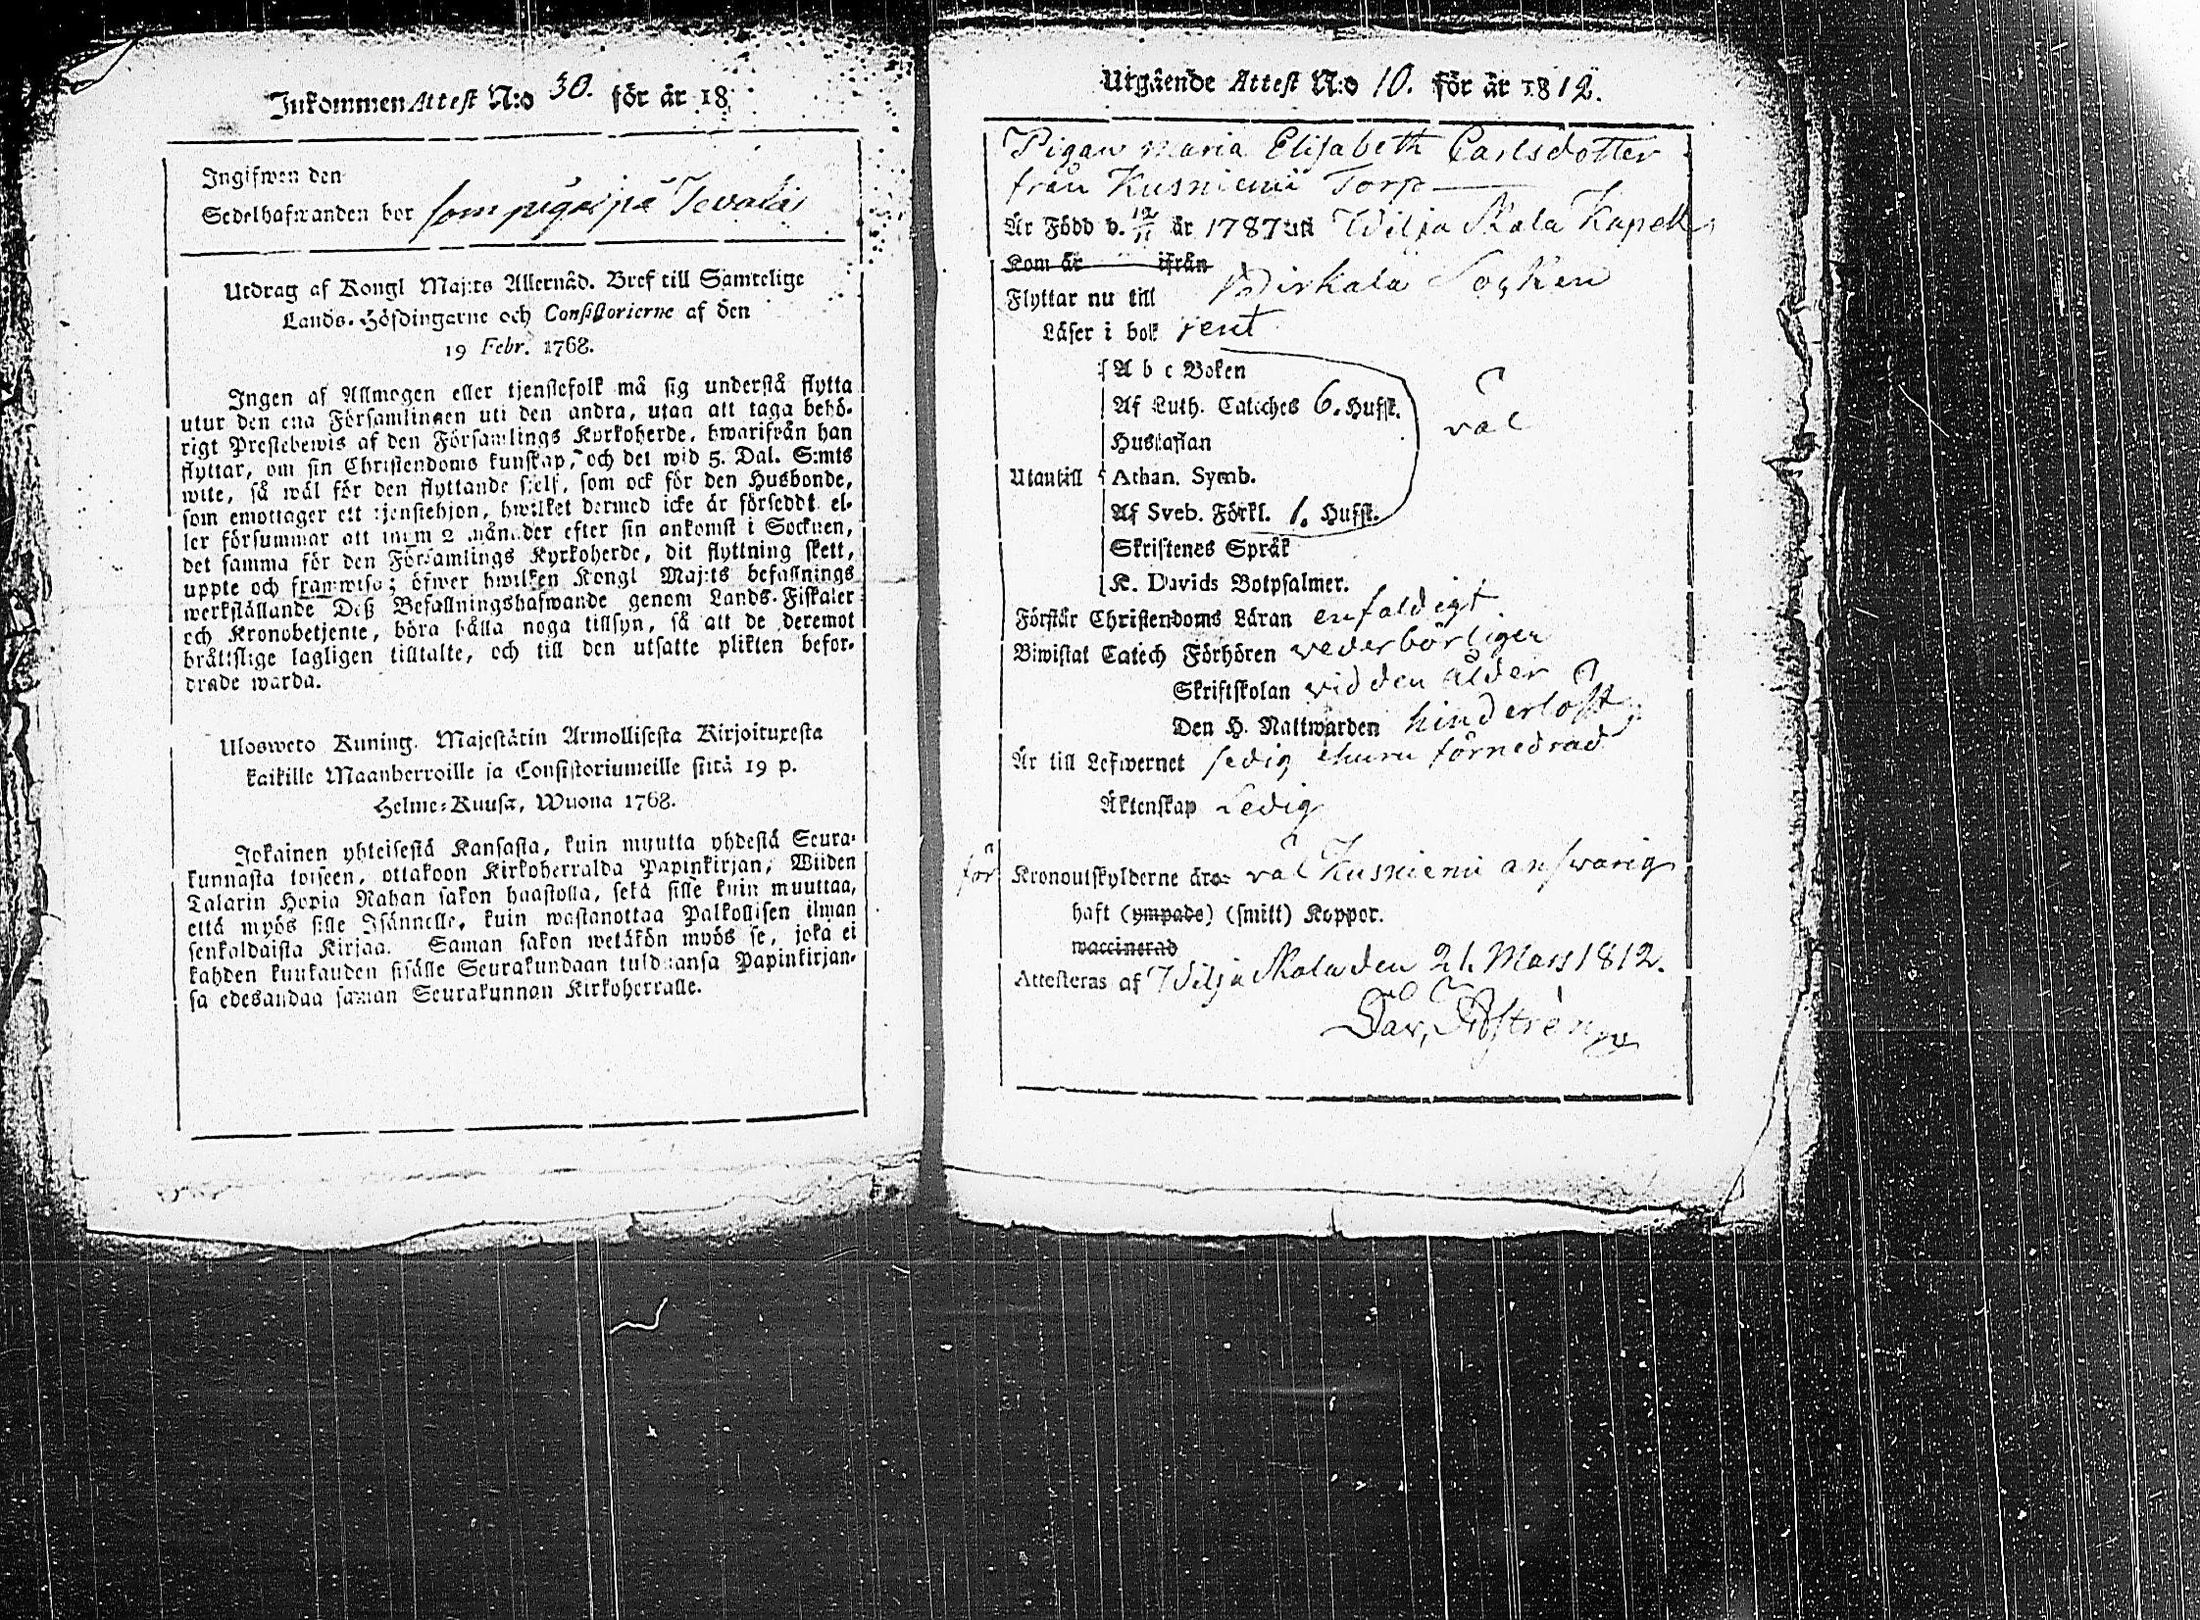 Inkommen Attest N:o 30. för år 18
Ingifwen den
Sedelhafwanden bor som piga på
Utdrag af Kongl Maj:ts Allernåd. Bref till Samtelige
Lands-Höfdingarne och Consistorierne af den
19 Febr. 1768.
Ingen af Allmogen eller tjenstefolk må sig understå flytta
utur den ena Församlingen uti den andra, utan att taga behö-
rigt Prestebewis af den Församlings Kyrkoherde, hwarifrån han
flyttar, om sin Christendoms kunskap, och det wid 5. Dal. S:mts
wite, så wäl för den flyttande sjelf, som ock för den Husbonde,
som emottager ett tjenstehjon, hwilket dermed icke är förseddt el-
ler försummar att inom 2 månader efter sin ankomst i Socknen,
det samma för den Församlings Kyrkoherde, dit flyttning skett,
uppte och framwisa; öfwer hwilken Kongl Maj:ts befallnings
werkställande Deß Befallningshafwande genom Lands-Fiskaler
och Kronobetjente, böra hålla noga tillsyn, så att de deremot
bråttslige lagligen tilltalte, och till den utsatte plikten befor-
drade warda.
Ulosweto Kuning. Majestätin Armollisesta Kirjoituxesta
kaikille Maanherroille ja Consistoriumeille siitä 19 p.
Helme-Kuusa, Wuona 1768.
Jokainen yhteisestä Kansasta, kuin muutta yhdestä Seura-
kunnasta toiseen, ottakoon Kirkoherralda Papinkirjan, Wiiden
Talarin Hopia Rahan sakon haastolla, sekä sille kuin muuttaa,
että myös sille Isännelle, kuin wastanottaa Palkollisen ilman
senkaldaista Kirjaa. Saman sakon wetäkön myös se, joka ei
kahden kuukauden sisälle Seurakundaan tulduansa Papinkirjan-
sa edesandaa saman Seurakunnan Kirkoherralle.
Utgående Attest N:o 10. för år 1812.
Pigan Maria Elisabeth Carlsdotter
från Kusniemi Torp
Är Född d. 12/11 år 1787 uti Wiljaskala Kapell
Kom år ifrån
Flyttar nu till Birkala Socken
Läser i bok rent
A b c Boken
Af Luth. Cateches 6. Hufst.
Hustaflan
väl
Utantill Athan. Symb.
Af Sveb. Förkl. 1. Hufst.
Skriftenes Språk
K. Davids Botpsalmer.
Förstår Christendoms Läran enfaldigt
Biwistat Catech Förhören vederbörligen
Skriftskolan vid den ålder
Den H. Nattwarden hinderlöst
Är till Lefwernet sedig ehuru förnedrad
Äktenskap Ledig
för Kronoutskylderne äro väl Kusniemi answarig
haft (ympade) (smitt) Koppor.
waccinerad
Attesteras af Wiljaskala den 21. Mars 1812.